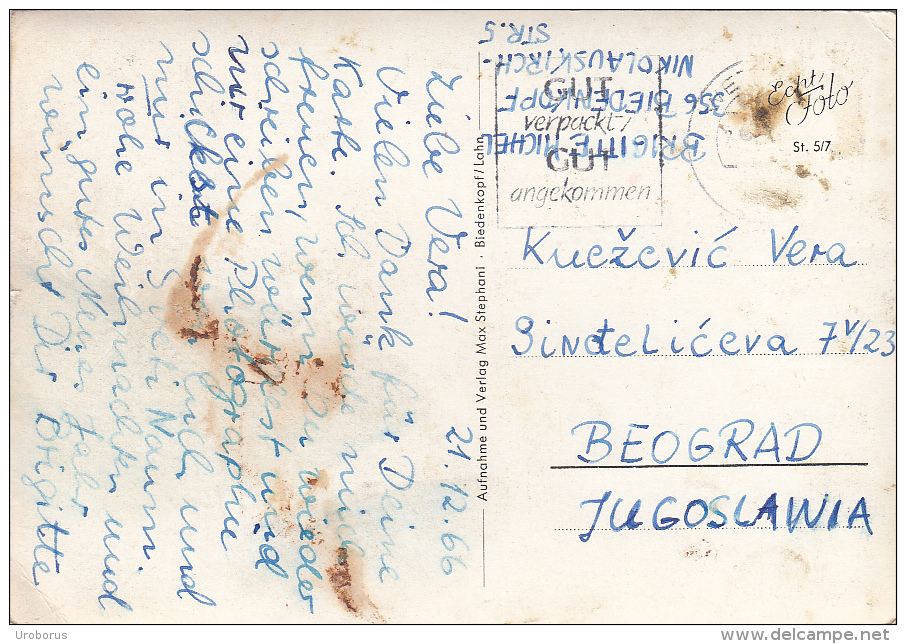 21.12.66
Liebe Vera!
Vielen Dank für Deine
Karte. Ich würde mich
freuen, wenn Du wieder
schreiben würdest und
mir eine Photographie
schickst von Euch und
Nauni.
Frohe Weihnachten und
ein gutes Neues Jahr
wünscht Dir Brigitte
Aufnahme und Verlag Max Stephani · Biedenkopf/Lahn
BRIGITTE MICHEL
356 BIEDENKOPF
NIKOLAUSKIRCH-
STR. 5
GUT
verpackt/
GUT
angekommen
Echt
Foto
St. 5/7
Knežević Vera
Sinđelićeva 7V/23
BEOGRAD
JUGOSLAWIA
Uroborus
www.delcampe.net